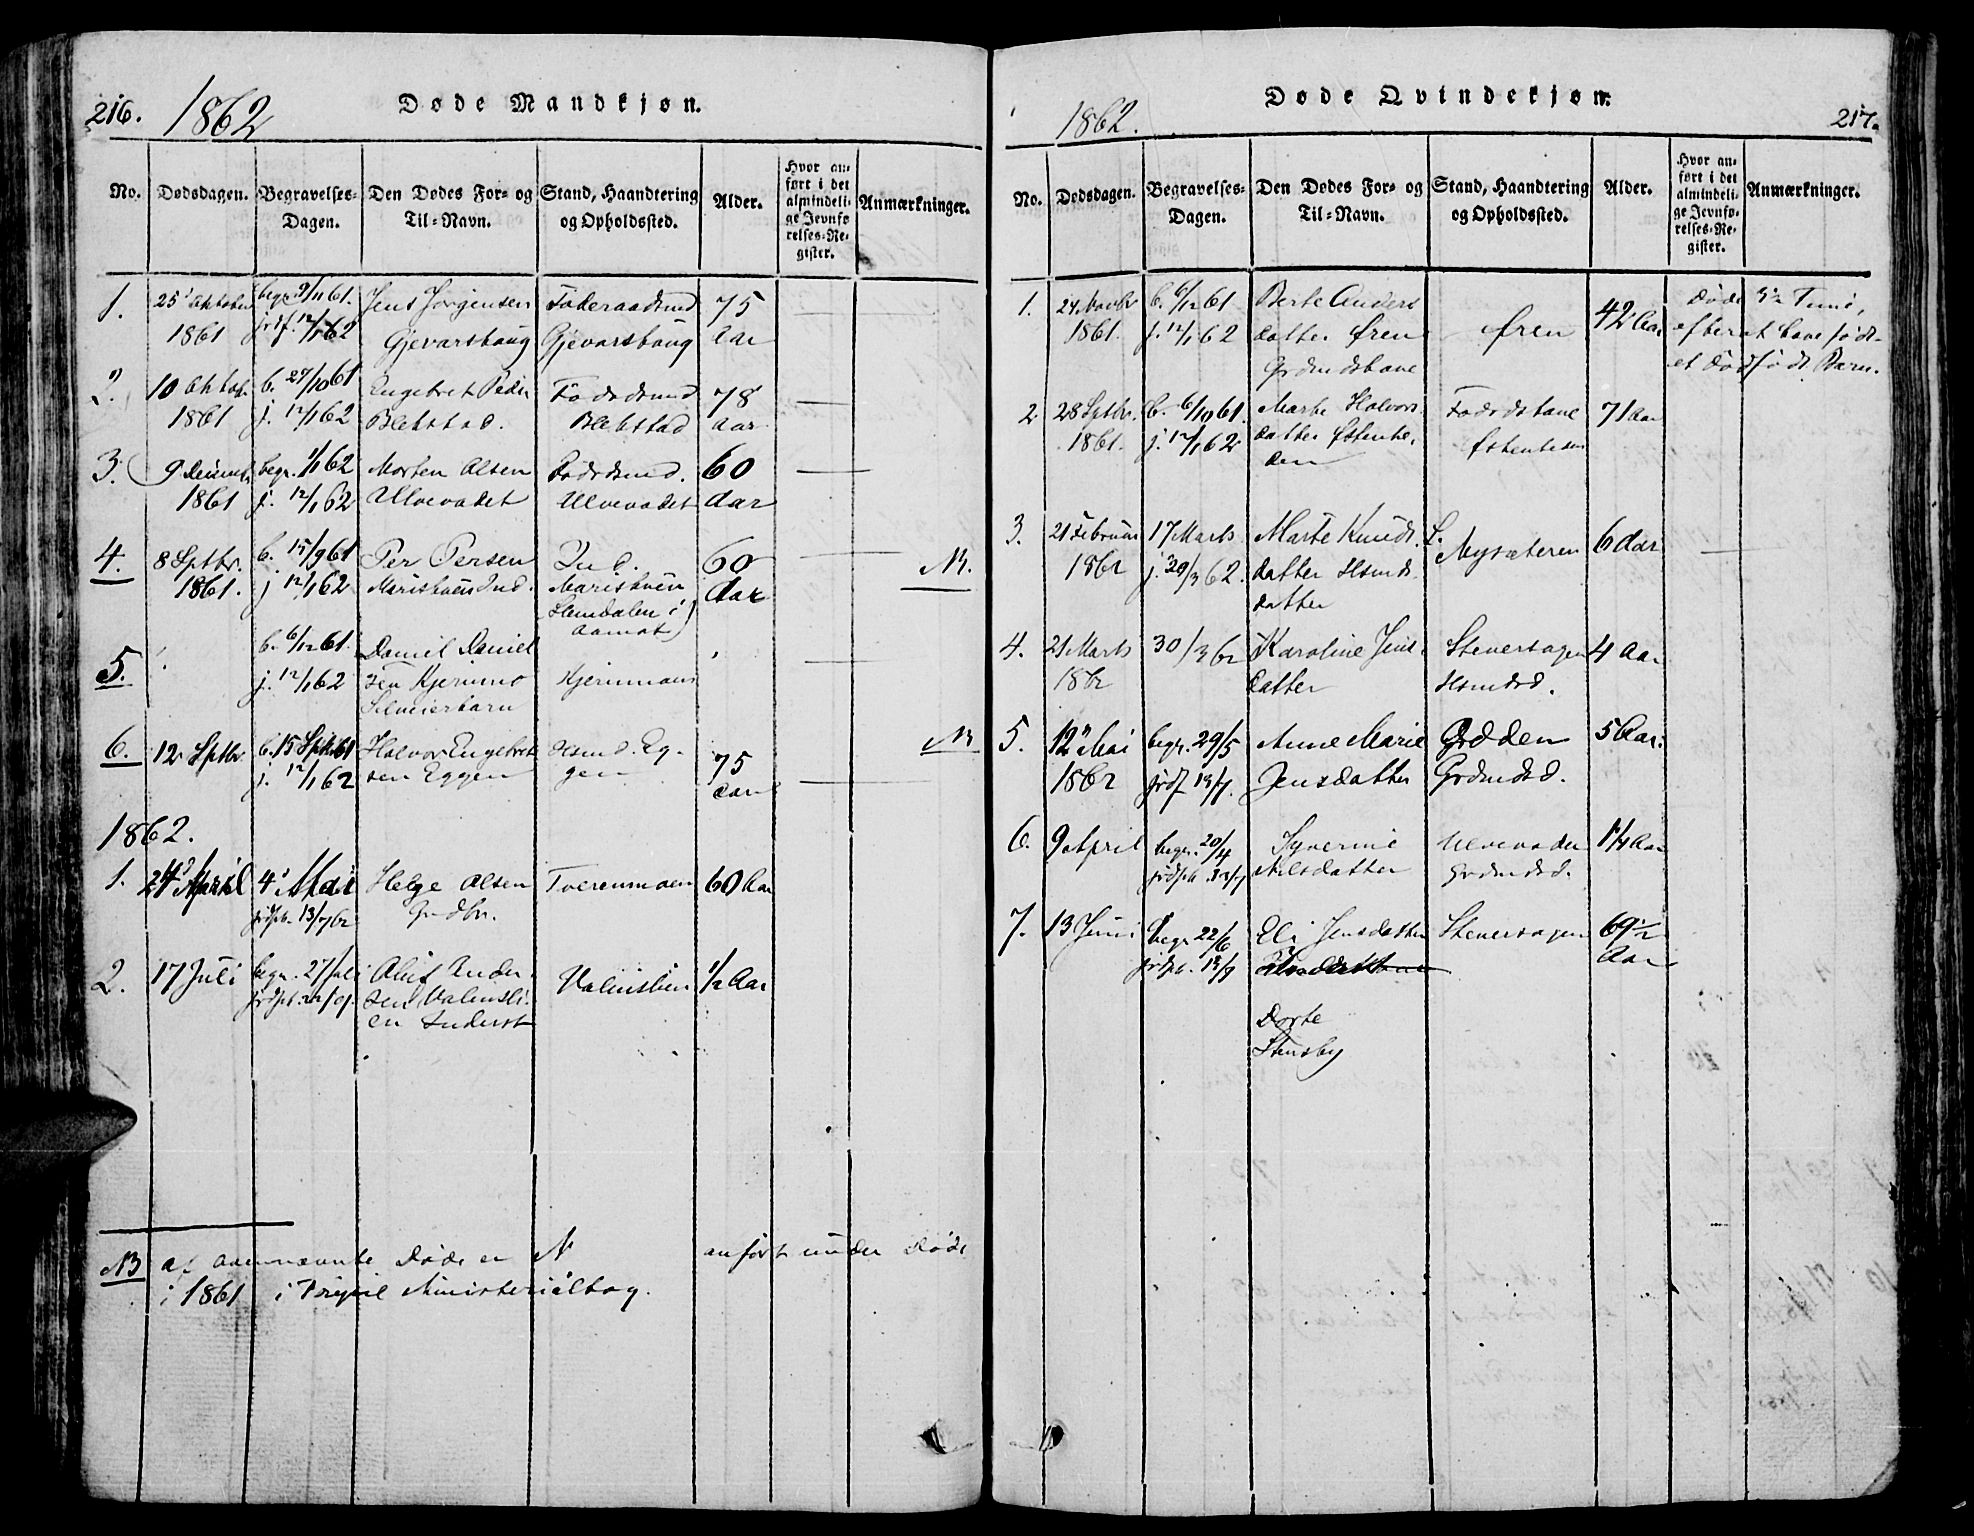 216.
1862
Døde Mandkjøn.
No.
Dødsdagen.
Begravelses-
Dagen.
Den Dødes For- og
Til-Navn.
Stand, Haandtering
og Opholdssted.
Alder.
Hvor an-
ført i det
almindeli-
ge Jevnfø-
relses-Re-
gister.
Anmærkninger.
1.
25 Oktober
1861
begr. 9/11 61.
jrdf. 12/1 62
Jens Jørgensen
Gjevarshaug
Føderaadsmd
Gjevarshaug
75
Aar
2.
10 Oktobr
1861
b. 27/10 61
j. 12/1 62
Engebret Peder
Blekstad.
Blekstad
78
Aar
3.
9 Decemb
1861
begr. 1/1 62
j. 12/1 62
Morten Olsen
Ulvevadet
Fødrdsmd.
Ulvevadet
60
Aar
4.
8 Septbr.
1861.
b. 15/9 61
j 12/1 62
Per Persen
Maristuen Ind.
Ind.
Maristuen
Stendalen i
Aamot)
60
Aar
NB.
5.
b. 6/12 61.
j. 12/1 62
Daniel Daniel
sen Kjernmo
Selveierbarn
Kjernmoen
6.
12 Septbr.
b. 15 Sptb 61
j. 12/1 62
Halvor Engebret
sen Eggen
Hsmd. Eg-
gen
75
Aar
NB
1862.
1.
24 April
4 Mai
jrdpk. 13/7 62
Helge Olsen
Gmdbr.
Tverenmoen
60 Aar
2.
17 Juli
begr. 27/juli
Oluf Ander
sen Valmsli
en Inderst
Valmslien
1/2 Aar
NB
af ovennævnte Døde er N anført under Døde
i 1861 i Trysil Ministerialbog.
1862.
Døde Qvindekjøn.
217.
No.
Dødsdagen.
Begravelses-
Dagen.
Den Dødes For- og
Til-Navn.
Stand, Haandtering
og Opholdssted.
Alder.
Hvor an-
ført i det
almindeli-
ge Jevnfø-
relses-Re-
gister.
Anmærkninger.
1.
24 Novbr
1861.
b. 6/12 61
j. 12/1 62
Berte Anders
datter Øren
Grdmdskone
Øren
42 Aar
Døde 5½ Time,
efter at have født
et dødfødt Barn.
2
28 Sptbr.
1861.
b. 6/10 61.
j. 12/1 62
Marte Halvors
datter Østenhe.
den
Fødrdskone
Østenheden
71 Aar
3.
21 Februar
1862
17 Marts
j. 30/3 62.
Marte Knuds.
datter Hsmds
datter
Nysæteren
6 Aar
4.
21 Marts
1862
30/3 62
Karoline Jens
datter
Stenersagen
Hsmdsd.
4 Aar
5.
12 Mai
1862
begr. 29/5
jrdf 13/7.
Anne Marie
Jensdatter
Grdmdsd.
5 Aar.
6.
9 April
begr. 20/4
jrdpk. 13/7
Syverine
Nilsdatter
Ulvevadet
Grdmdsd.
1¼ Aar
7.
13 Juni
begr 22/6
jrdpk. 13/7
Eli Jensdatter
Dorte
Stensby
Stenersagen
69½
Aar